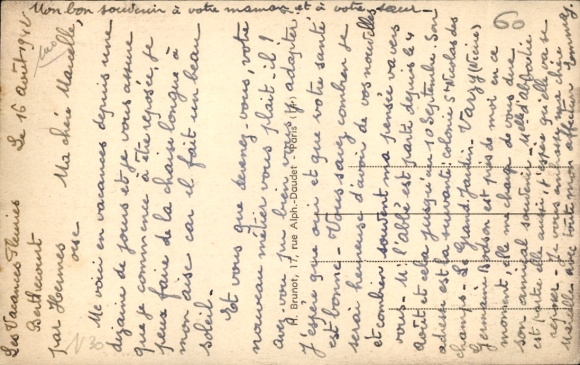 Mon bon souvenir à votre maman et à votre sœur -
60
Les Vacances Fleuries
Berthecourt
par Hermes
oise
Le 16 août
Ma chère Marcelle,
Me voici en vacances depuis une
dizaine de jours et je vous assure
que je commence à être reposée, je
peux faire de la chaise longue à
mon aise car il fait un beau
soleil -
Et vous que devenez-vous, votre
nouveau métier vous plaît-il !
avez-vous pu bien vous y adapter
J'espère que oui et que votre santé
est bonne - Vous savez combien je
serai heureuse d'avoir de vos nouvelles
et combien souvent ma pensée va vers
vous - M. l'abbé est parti depuis le 4
août et cela jusqu'au 10 Septembre. Son
adresse est la suivante, colonie St Nicolas des
champs - Le Grand Jardin - Varzy (Nièvre)
Germaine est près de moi en ce
moment, elle me charge de vous dire
son amical souvenir. Melle d'
est partie elle aussi, j'espère qu'elle va se
reposer - Je vous embrasse ma chère
Marcelle avec toute mon affection
A. Brunot, 17, rue Alph.-Daudet - Paris (14e)
N 30